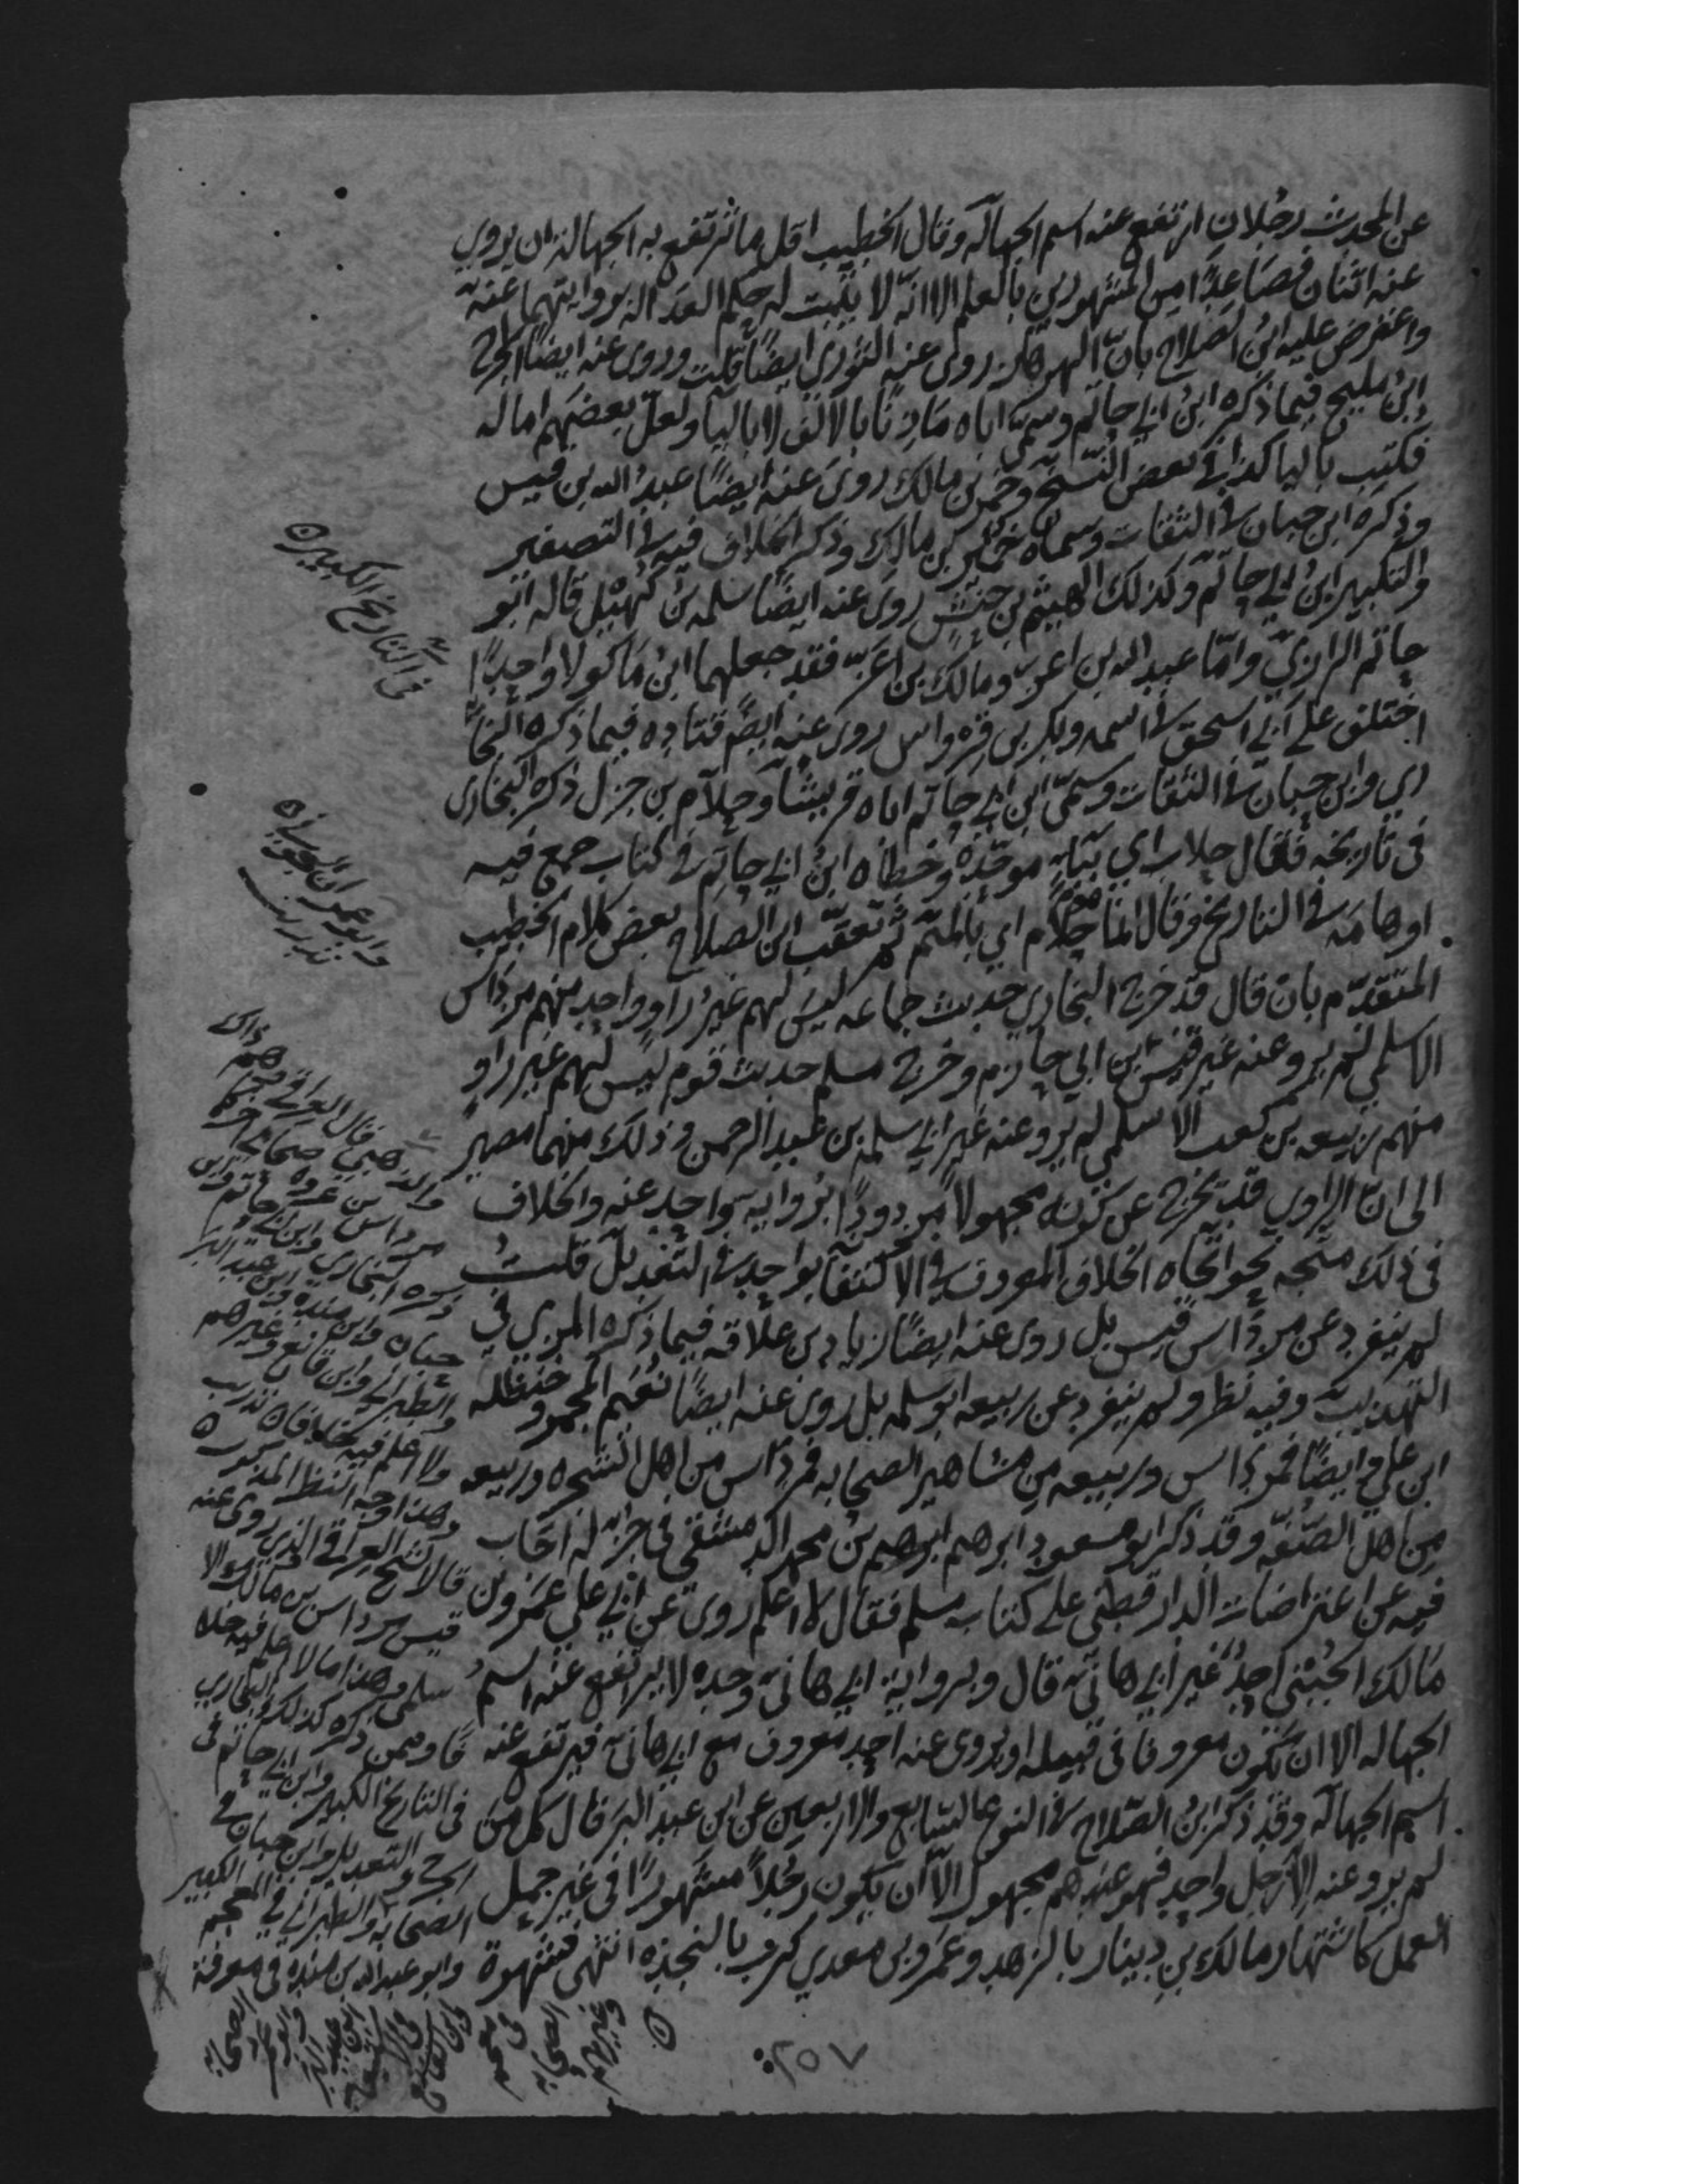 عن المحدث رجلان ارتفع عنه اسم الجهالة وقال الخطيب اقل ما ترتفع به الجهالة ان يروي
عنه اثنان فصاعدًا من المشهورين بالعلم الا انه لا يثبت له حكم العدالة بروايتهما عنه
واعترض عليه ابن الصلاح بان الهزهاز روى عنه الثوري ايضًا قلت وروى عنه ايضًا الجراح
ابن مليح فيما ذكره ابن ابي حاتم وسمى اباه مادنا بالالف لا باليا ولعل بعضهم اماله
فكتب باليا كذا في بعض النسخ وخمر بن مالك روى عنه ايضًا عبد الله بن قيس
وذكره ابن حبان في الثقات وسماه خمير بن مالك وذكر الخلاف فيه في التصغير
والتكبير ابن ابي حاتم وكذلك الهيثم بن حنش روى عنه ايضًا سلمه بن كهيل قاله ابو
حاتم الرازي واما عبد الله بن اعز ومالك بن اعز فقد جعلهما ابن ماكولا واحدًا
اختلف على ابي اسحق في اسمه وبكر بن قرواس روى عنه ايضًا قتاده فيما ذكره البخا
ري وابن حبان في الثقات وسمى ابن ابي حاتم اباه قريشا وحلام بن جزل ذكره البخاري
في تاريخه فقال حلاب اي بباء موحدة وخطأه ابن ابي حاتم في كتاب جمع فيه
اوهامه في التاريخ وقال انما هو حلام اي بالميم ثم تعقب ابن الصلاح بعض كلام الخطيب
المتقدم بان قال قد خرج البخاري حديث جماعه ليس لهم غير راو واحد منهم مرداس
الاسلمي لم يرو عنه غير قيس بن ابي حازم وخرج مسلم حديث قوم ليس لهم غير راو
منهم ربيعه بن كعب الاسلمي لم يرو عنه غير ابي سلمة بن عبد الرحمن وذلك منهما مصير
الى ان الراوي قد يخرج عن كونه مجهولا مردودًا برواية واحد عنه والخلاف
في ذلك متجه نحو اتجاه الخلاف المعروف في الاكتفا بواحد في التعديل قلت
لم ينفرد عن مرداس قيس بل روى عنه ايضًا زياد بن علاقه فيما ذكره المزي في
التهذيب وفيه نظر ولم ينفرد عن ربيعه ابو سلمه بل روى عنه ايضًا نعيم المجمر و حنظله
ابن علي وايضًا فمرداس وربيعه من مشاهير الصحابه فمرداس من اهل الشجره وربيعه
من اهل الصفه وقد ذكر ابو مسعود ابرهيم ابرهيم بن محمد الدمشقي في جزء له اجاب
فيه عن اعتراضات الدارقطني على كتاب مسلم فقال لا اعلم روى عن ابي علي عمرو بن
مالك الجنبي احد غير ابي هانئ قال وبرواية ابي هانئ وحده لا يرتفع عنه اسم
الجهاله الا ان يكون معروفا في قبيله او يروي عنه احد معروف مع ابي هانئ فيرتفع عنه
اسم الجهاله وقد ذكر ابن الصلاح في النوع السابع والاربعين عن ابن عبد البر قال كل من
لم يرو عنه الا رجل واحد فهو عندهم مجهول الا ان يكون رجلا مشهورًا في غير حمل
العلم كاشتهار مالك بن دينار بالزهد وعمرو بن معدي كرب بالنجده انتهى فشهرة
في التاريخ الكبير ه
وابو عمران الجوني ه
تدريب
والذهبي قال العراقي وهم
مرداس بن عروه صحابي اخر
ذكره البخاري وابن ابي حاتم وابن
حبان وابن منده وابن عبد البر
والطبراني وابن قانع وغيرهم
ولا اعلم فيه خلافا ه تدريب
وهذا وجه النظر المذكور ه
قال الشيخ العراقي الذي روى عنه
قيس مرداس بن مالك الا
سلمي وهذا ما لا اعلم فيه خلا
فا وممن ذكره كذلك البخاري
في التاريخ الكبير وابن ابي حاتم في
الجرح والتعديل وابن حبان في
الصحابه والطبراني في المعجم الكبير
وابو عبد الله بن منده في معرفة
الصحابه
٧٥٢